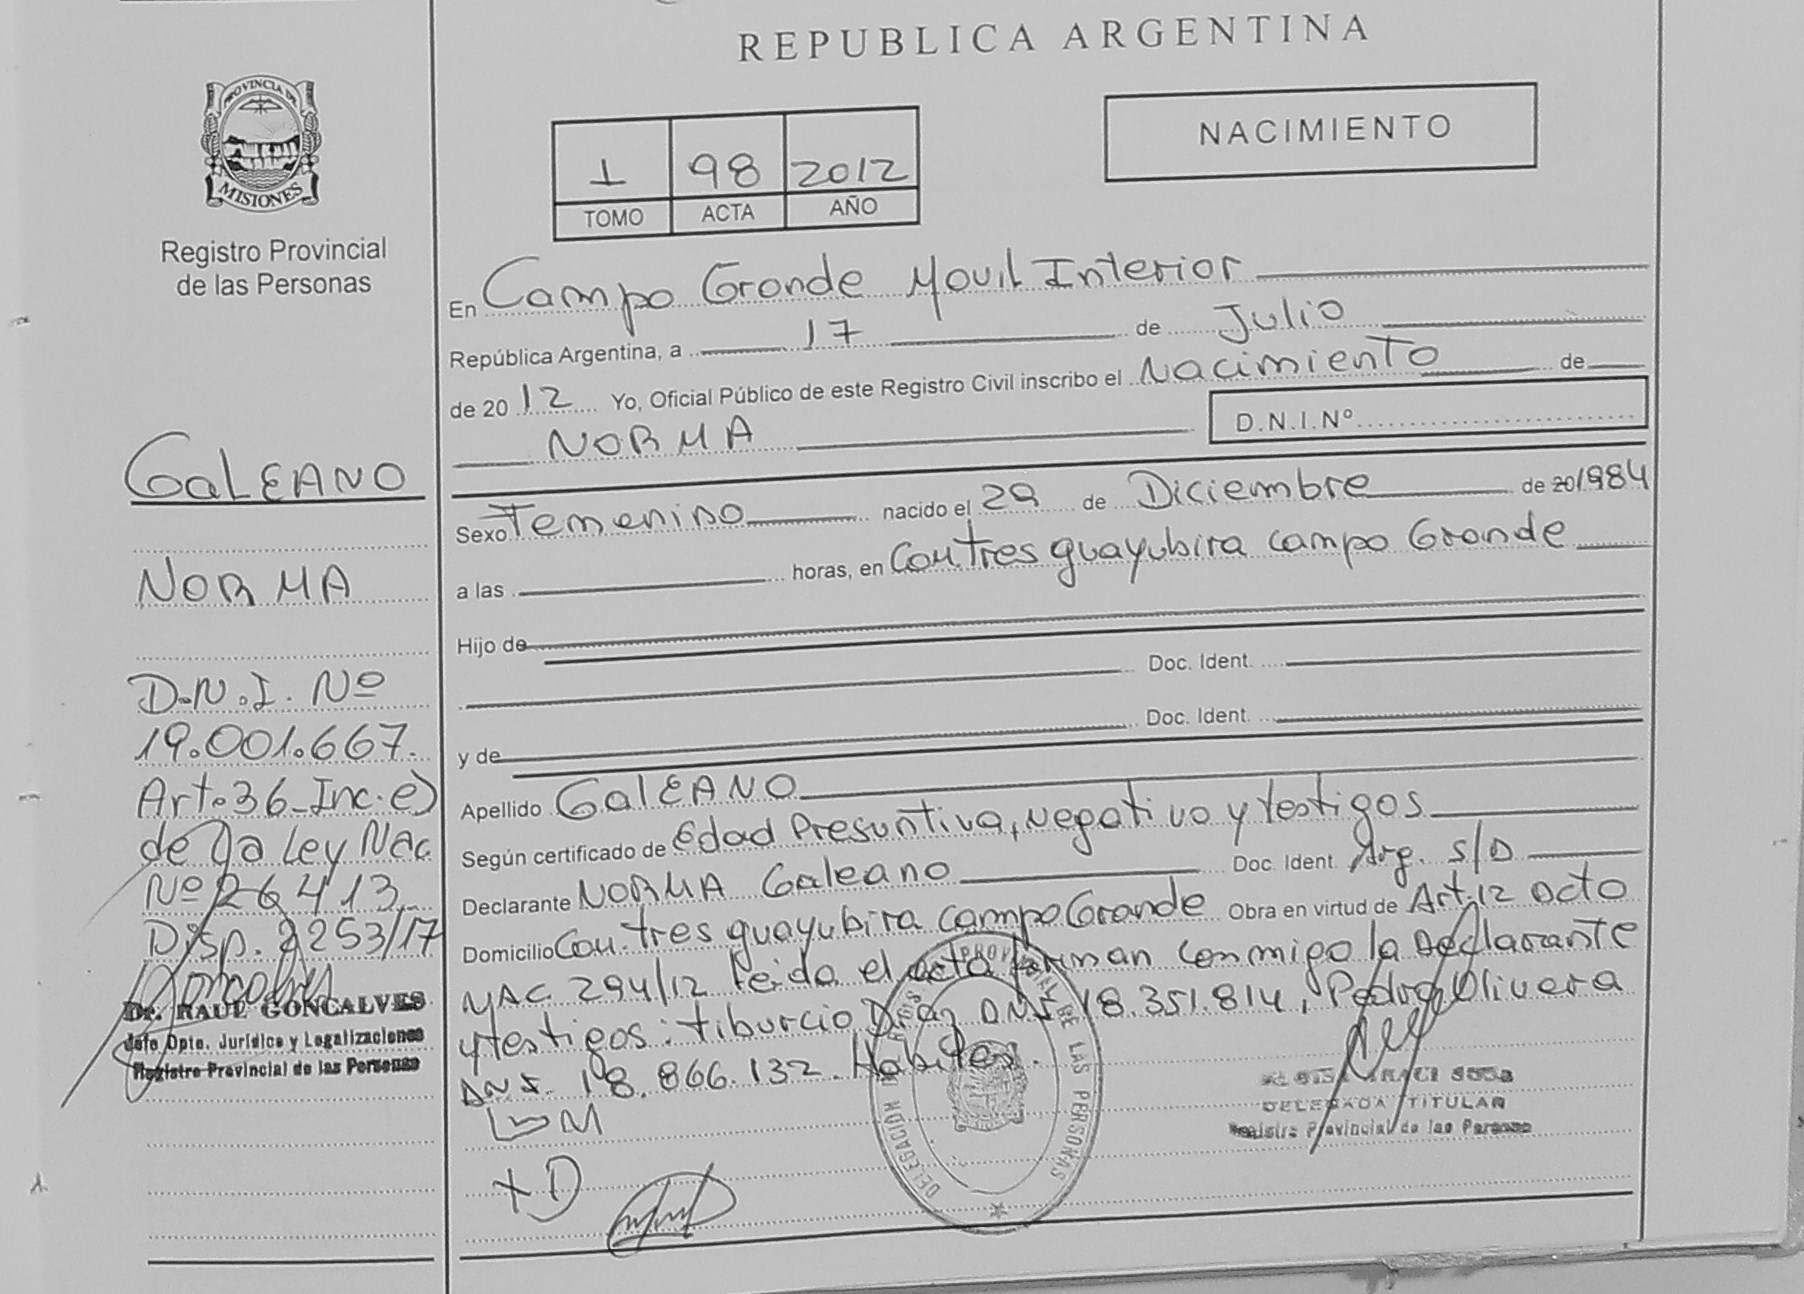 REPUBLICA ARGENTINA
PROVINCIA DE
MISIONES
Registro Provincial
de las Personas
1 98 2012
TOMO ACTA AÑO
NACIMIENTO
En Campo Grande Movil Interior
República Argentina, a 17 de Julio
de 2012 Yo, Oficial Público de este Registro Civil inscribo el Nacimiento de
NORMA D.N.I.Nº
Sexo Femenino nacido el 29 de Diciembre de 201984
a las horas, en Cou.tres guayubira campo Grande
Hijo de
Doc. Ident.
y de Doc. Ident.
Apellido GalEANO
Según certificado de Edad Presuntiva, negativo y testigos
Declarante NORMA Galeano Doc. Ident. Arg. S/D
Domicilio Cou.tres guayubira campo Grande Obra en virtud de Art.12 Dcto
NAC 294/12 leida el acta firman conmigo la Declarante
y testigos: tiburcio Diaz DNI 18.351.814, Pedro Olivera
DNI. 18.866.132. Habiles.
GaLEANO
NORMA
D.N.I. Nº
19.001.667.
Art.36-Inc.e)
de la Ley Nac.
Nº 26413
Disp. 2253/17
Dr. RAUL GONCALVES
Jefe Dpto. Jurídico y Legalizaciones
Registro Provincial de las Personas
DELEGACION PROVINCIAL DE LAS PERSONAS
DELEGADA TITULAR
Registro Provincial de las Personas
+D